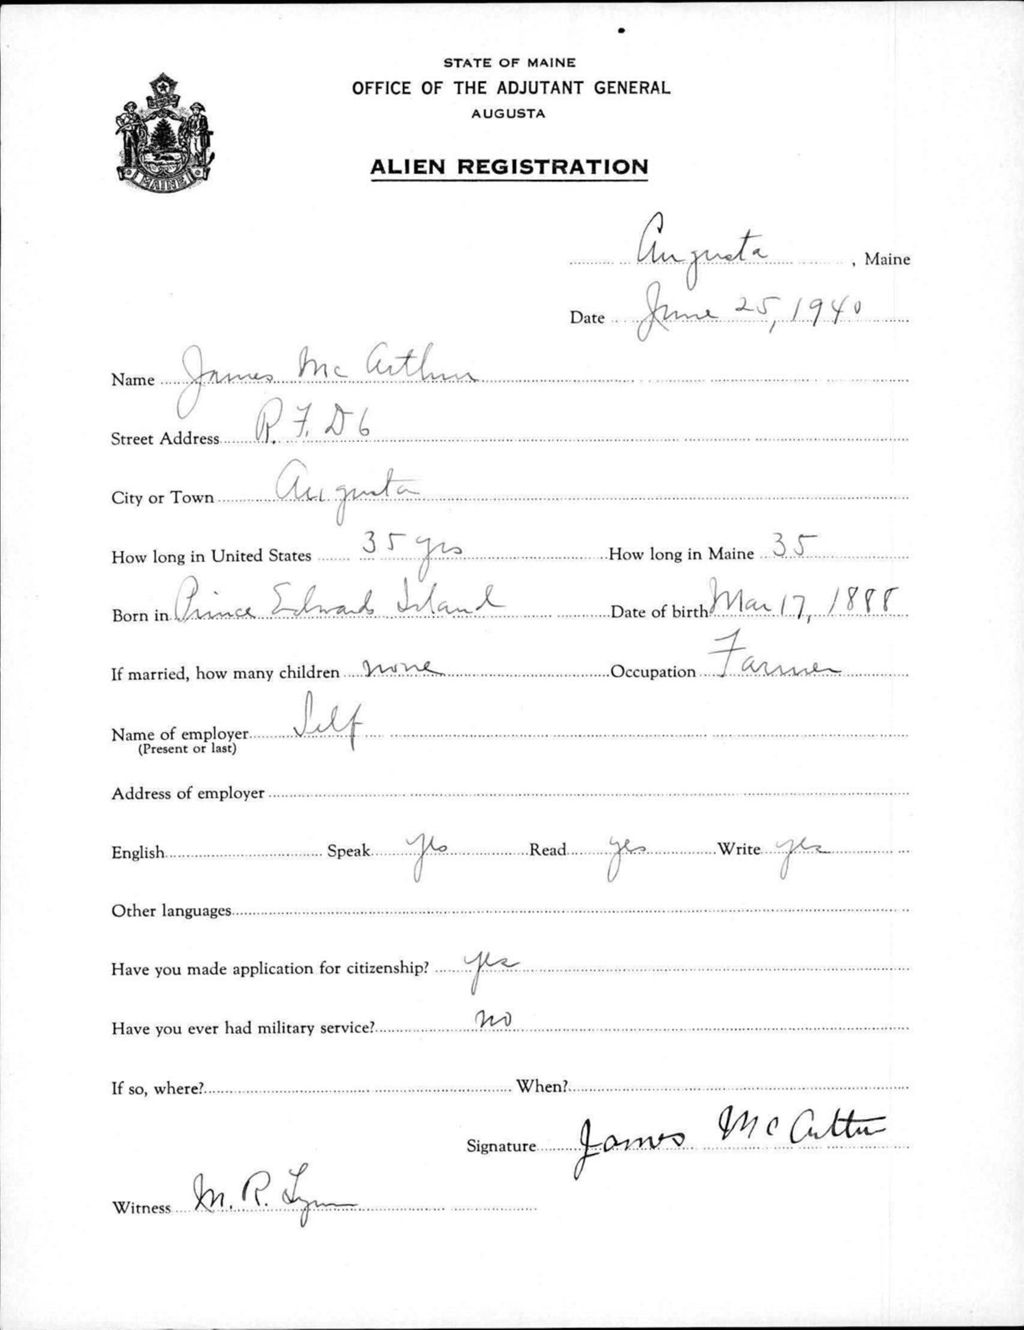 STATE OF MAINE
OFFICE OF THE ADJUTANT GENERAL
AUGUSTA
MAINE
ALIEN REGISTRATION
Augusta, Maine
Date June 25, 1940
Name James McArthur
Street Address R. F. D 6
City or Town Augusta
How long in United States 35 yrs How long in Maine 35
Born in Prince Edwards Island Date of birth Mar 17, 1888
If married, how many children none Occupation Farmer
Name of employer Self
(Present or last)
Address of employer
English Speak yes Read yes Write yes
Other languages
Have you made application for citizenship? yes
Have you ever had military service? no
If so, where? When?
Signature James McArthur
Witness M. R. Lynn